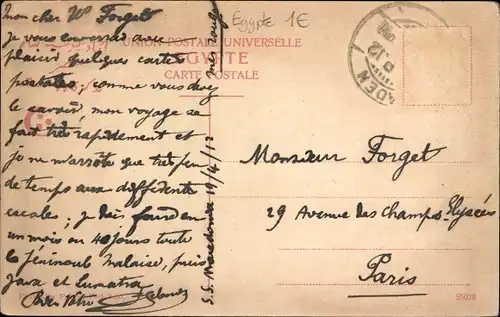 Mon cher Mr Forget
je vous enverrai avec
plaisir quelques cartes
postales; comme vous devez
le savoir, mon voyage se
fait très rapidement et
je ne m'arrête que très peu
de temps aux différentes
escales; je dois
un mois ou 40 jours toute
la Péninsule Malaise, puis
Java et Sumatra
Bien Vôtre
S.S. Macedonia 19/4/12
mer rouge
Egypte 1€
UNION POSTALE UNIVERSELLE
EGYPTE
CARTE POSTALE
ADEN
12
Monsieur Forget
29 Avenue des Champs-Elysées
Paris